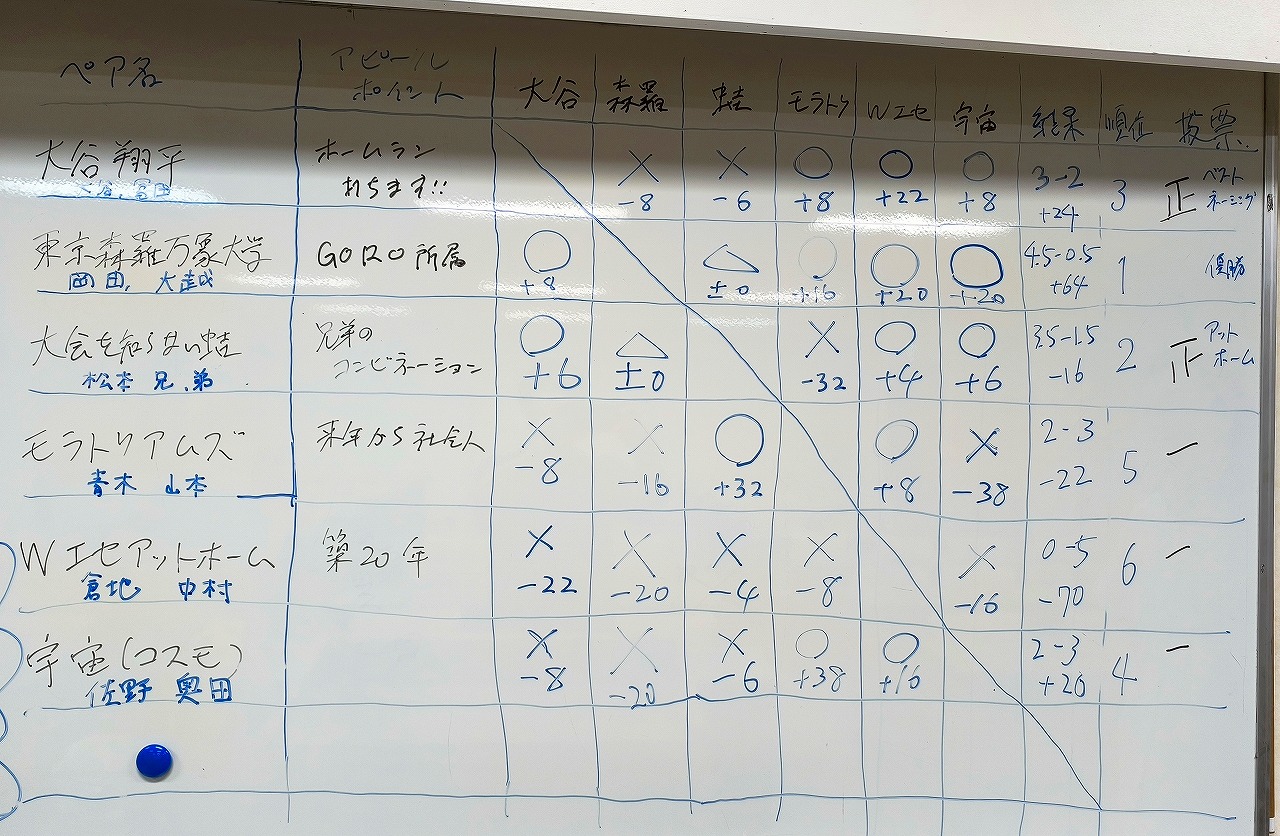 ペア名 アピールポイント 大谷 森羅 蛙 モラトリ Wエセ 宇宙 結果 順位 投票
大谷翔平 ホームラン × × ○ ○ ○ 3-2 3 正 ベストネーミング
大谷, 冨田 打ちます!! -8 -6 +8 +22 +8 +24
東京森羅万象大学 GORO所属 ○ △ ○ ○ ○ 4.5-0.5 1 優勝
岡田, 大越 +8 ±0 +16 +20 +20 +64
大会を知らない蛙 兄弟の ○ △ × ○ ○ 3.5-1.5 2 正 アットホーム
松本 兄, 弟 コンビネーション +6 ±0 -32 +4 +6 -16
モラトリアムズ 来年から社会人 × × ○ ○ × 2-3 5 一
青木 山本 -8 -16 +32 +8 -38 -22
Wエセアットホーム 築20年 × × × × × 0-5 6 一
倉地 中村 -22 -20 -4 -8 -16 -70
宇宙(コスモ) × × × ○ ○ 2-3 4 一
佐野 奥田 -8 -20 -6 +38 +16 +20